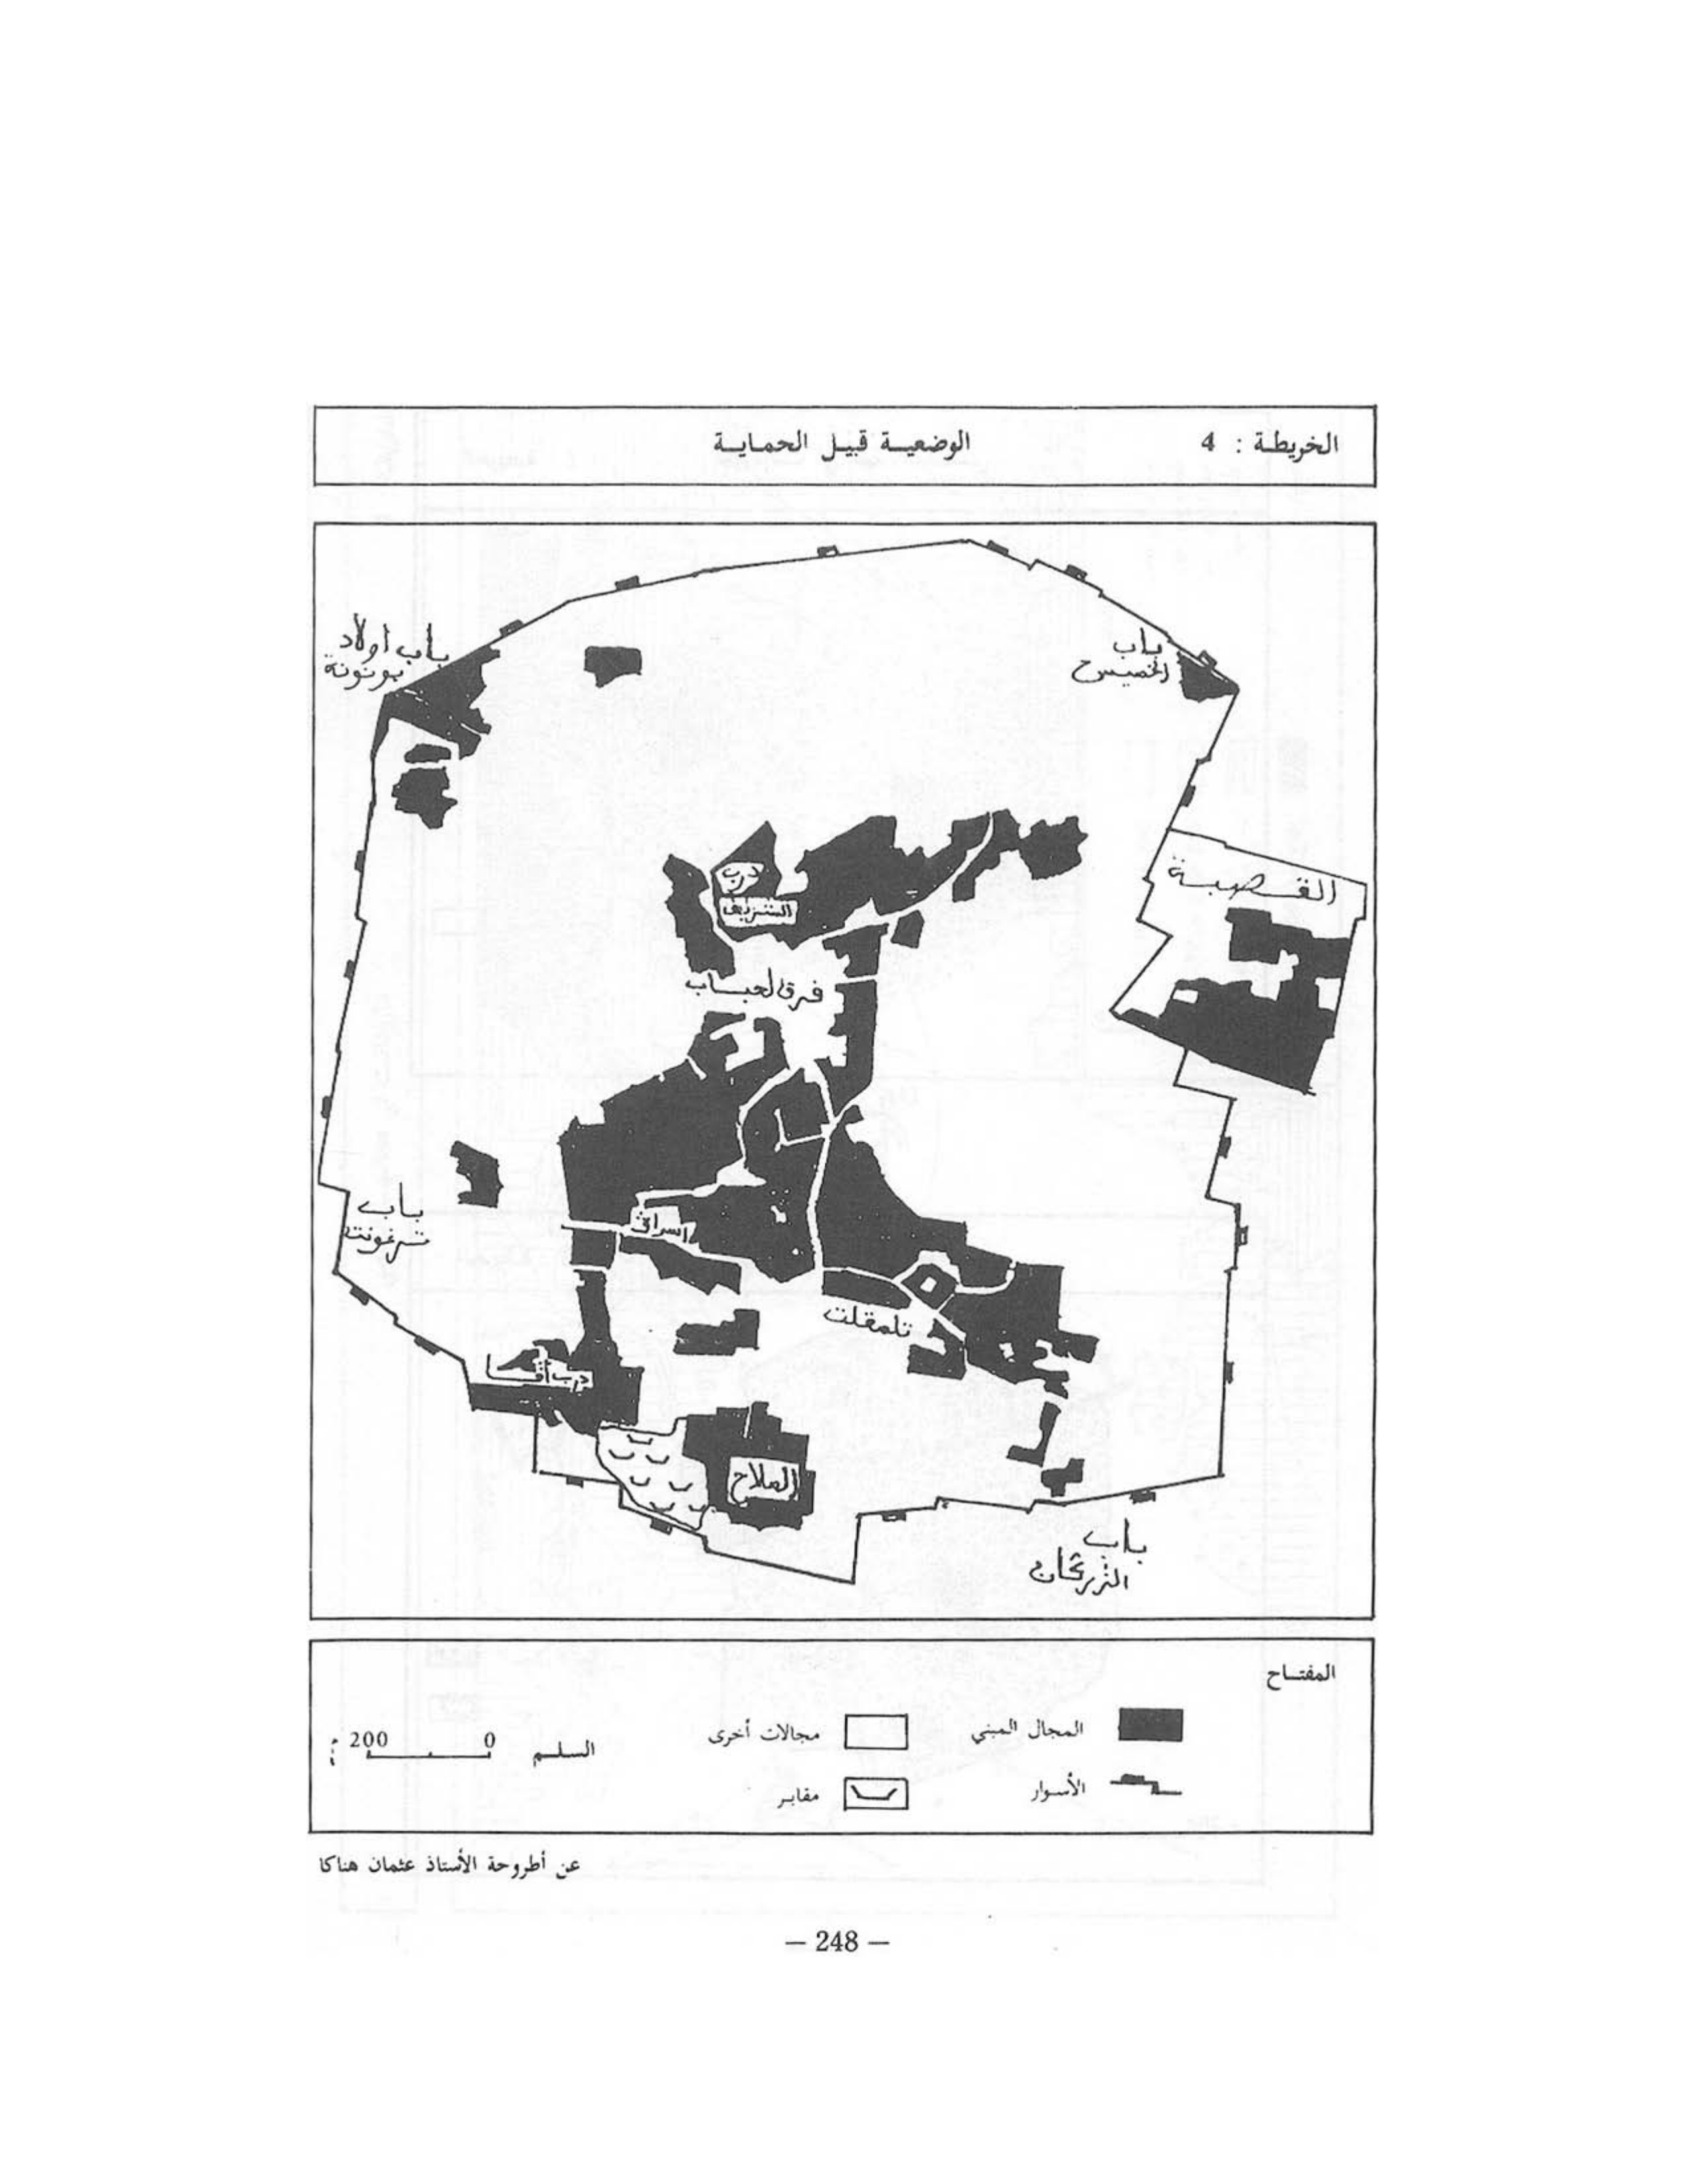 الخريطة : 4
الوضعية قبيل الحماية
باب اولاد
بونونة
باب
الخميس
القصبة
درب
الشريف
فرق لحباب
باب
ترغونت
اسراك
تلمقلت
درب أقا
الملاح
باب
الزركان
المفتاح
المجال المبني
مجالات أخرى
الأسوار
مقابر
السلم
0 200 م
عن أطروحة الأستاذ عثمان هناكا
– 248 –